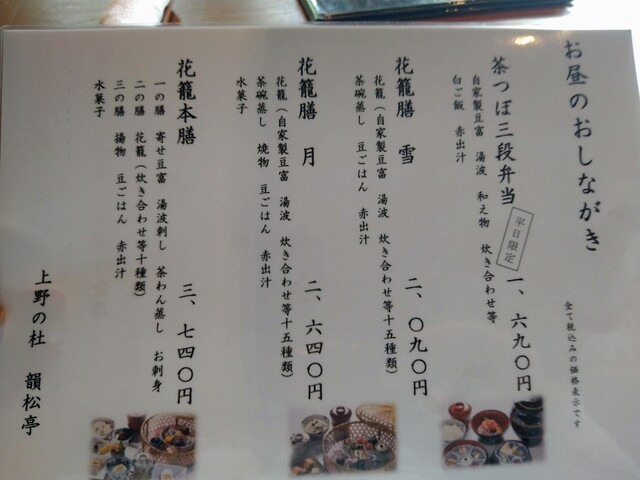 お昼のおしながき
全て税込みの価格表示です
茶つぼ三段弁当 平日限定 一、六九〇円
自家製豆富 湯波 和え物 炊き合わせ等
白ご飯 赤出汁
花籠膳 雪 二、〇九〇円
花籠(自家製豆富 湯波 炊き合わせ等十五種類)
茶碗蒸し 豆ごはん 赤出汁
花籠膳 月 二、六四〇円
花籠(自家製豆富 湯波 炊き合わせ等十五種類)
茶碗蒸し 焼物 豆ごはん 赤出汁
水菓子
花籠本膳 三、七四〇円
一の膳 寄せ豆富 湯波刺し 茶わん蒸し お刺身
二の膳 花籠(炊き合わせ等十種類)
三の膳 揚物 豆ごはん 赤出汁
水菓子
上野の杜 韻松亭